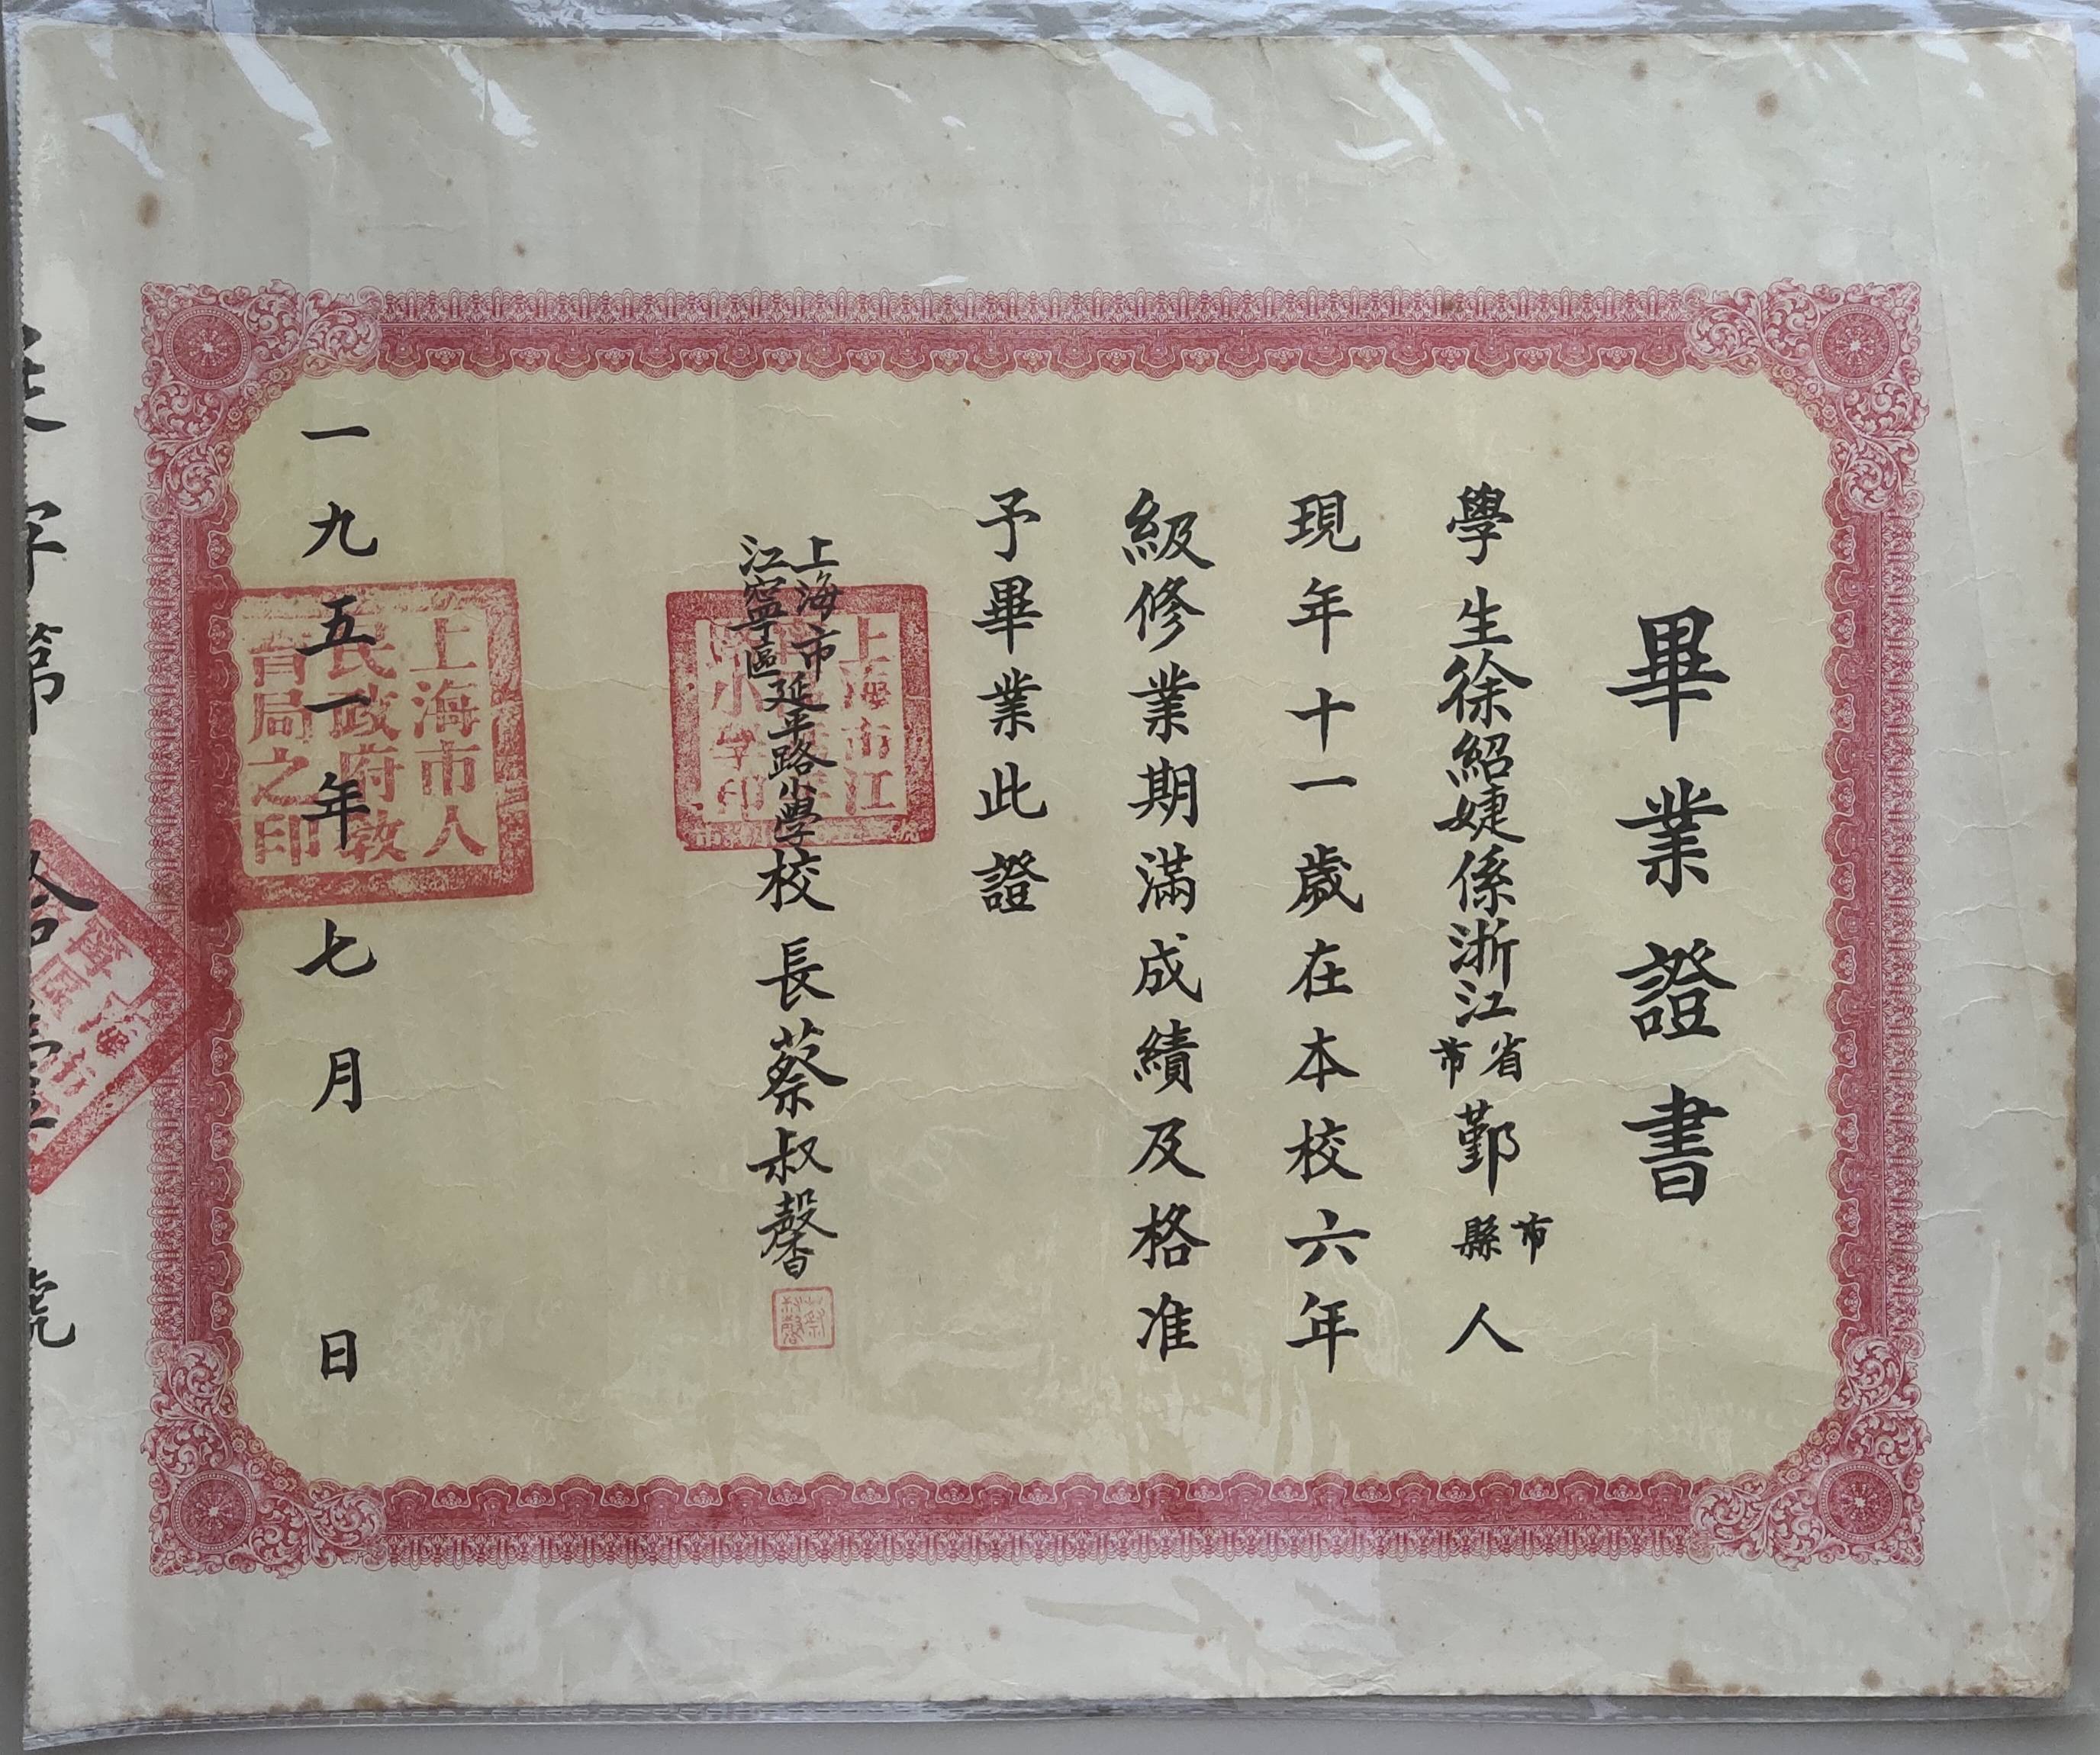 畢業證書
學生徐紹婕係浙江省市鄞市縣人
現年十一歲在本校六年
級修業期滿成績及格准
予畢業此證
上海市
江寧區
延平路小學校長蔡叔馨
蔡叔馨
一九五一年七月日
上海市人
民政府教
育局之印
上海市江
字第拾壹號